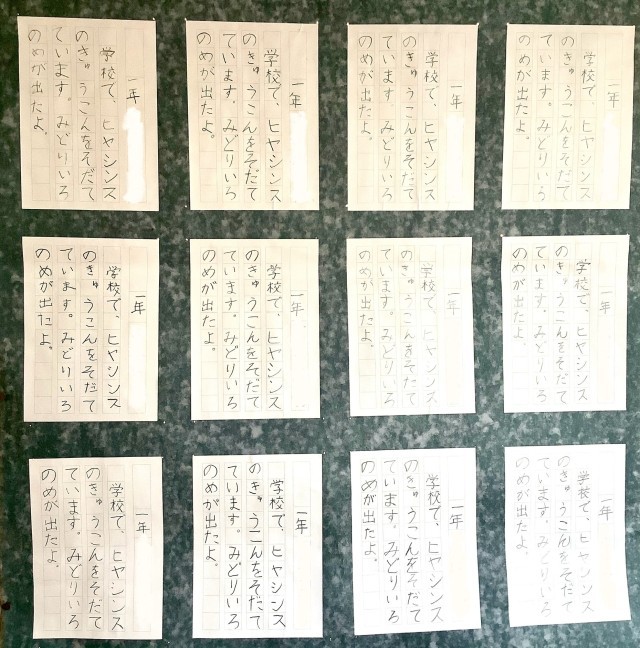 一年
学校で、ヒヤシンス
のきゅうこんをそだて
ています。みどりいろ
のめが出たよ。
一年
学校で、ヒヤシンス
のきゅうこんをそだて
ています。みどりいろ
のめが出たよ。
一年
学校で、ヒヤシンス
のきゅうこんをそだて
ています。みどりいろ
のめが出たよ。
一年
学校で、ヒヤシンス
のきゅうこんをそだて
ています。みどりいろ
のめが出たよ。
一年
学校で、ヒヤシンス
のきゅうこんをそだて
ています。みどりいろ
のめが出たよ。
一年
学校で、ヒヤシンス
のきゅうこんをそだて
ています。みどりいろ
のめが出たよ。
一年
学校で、ヒヤシンス
のきゅうこんをそだて
ています。みどりいろ
のめが出たよ。
一年
学校で、ヒヤシンス
のきゅうこんをそだて
ています。みどりいろ
のめが出たよ。
一年
学校で、ヒヤシンス
のきゅうこんをそだて
ています。みどりいろ
のめが出たよ。
一年
学校で、ヒヤシンス
のきゅうこんをそだて
ています。みどりいろ
のめが出たよ。
一年
学校で、ヒヤシンス
のきゅうこんをそだて
ています。みどりいろ
のめが出たよ。
一年
学校で、ヒヤシンス
のきゅうこんをそだて
ています。みどりいろ
のめが出たよ。